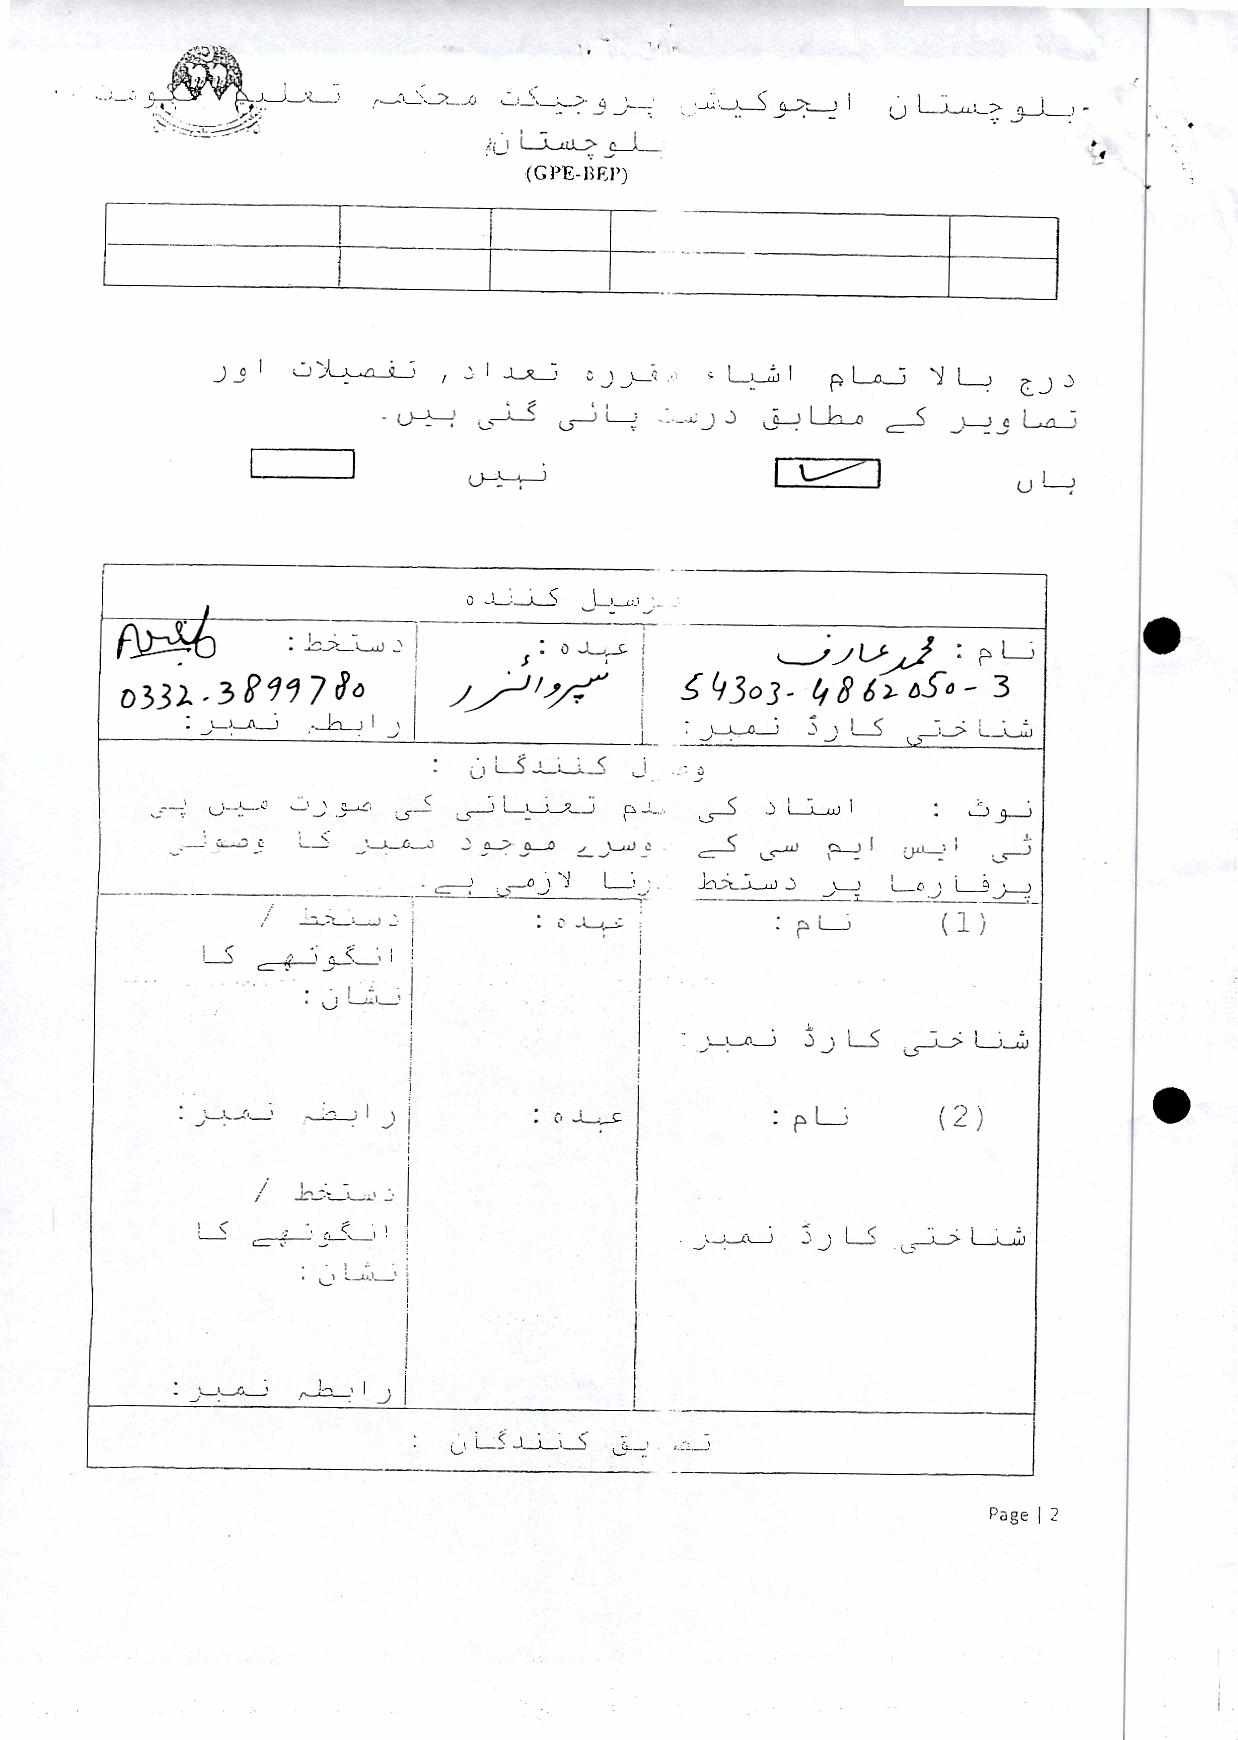 بلوچستان ایجوکیشن پروجیکٹ محکمہ تعلیم
بلوچستان
(GPE-BEP)
درج بالا تمام اشیاء مقررہ تعداد, تفصیلات اور
تصاویر کے مطابق درست پائی گئی ہیں.
ہاں نہیں
ترسیل کنندہ
نام : محمد عارف عہدہ : دستخط :
54303-4862050-3 سپروائزر 0332-3899780
شناختی کارڈ نمبر: رابطہ نمبر:
وصول کنندگان :
نوٹ : استاد کی عدم تعنیاتی کی صورت میں پی
ٹی ایس ایم سی کے دوسرے موجود ممبر کا وصولی
پرفارما پر دستخط کرنا لازمی ہے.
(1) نام : عہدہ : دستخط /
انگوٹھے کا
نشان :
شناختی کارڈ نمبر:
رابطہ نمبر:
(2) نام : عہدہ :
دستخط /
انگوٹھے کا
نشان :
شناختی کارڈ نمبر
رابطہ نمبر:
تصدیق کنندگان :
Page | 2